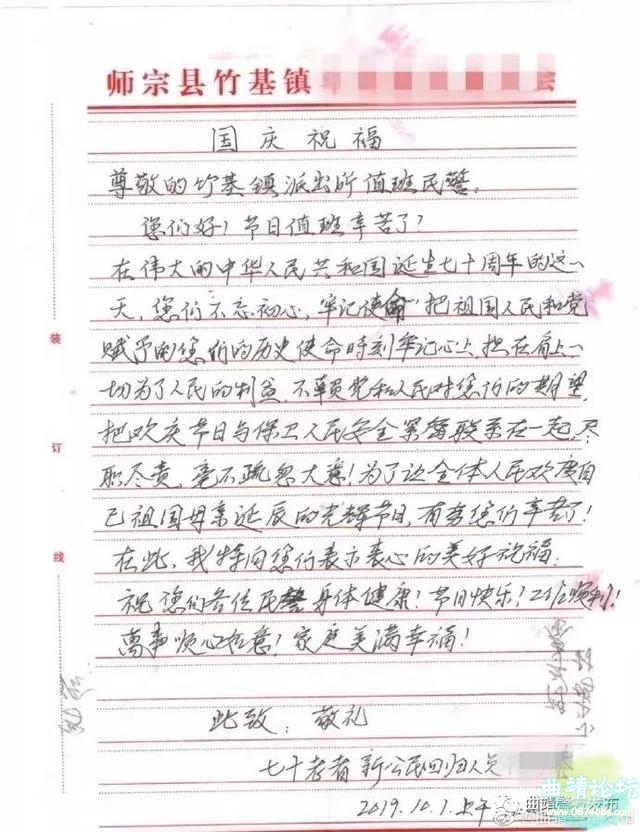 师宗县竹基镇
国庆祝福
尊敬的竹基镇派出所值班民警:
您们好!节日值班辛苦了?
在伟大的中华人民共和国诞生七十周年的这一
天,您们不忘初心,牢记使命"把祖国人民和党
赋予的您们的历史使命时刻牢记心上,担在肩上一
切为了人民的利益,不辜负党和人民对您们的期望
把欢庆节日与保卫人民安全紧密联系在一起,尽
职尽责,毫不疏忽大意!为了让全体人民欢度自
己祖国母亲诞辰的光辉节日,有劳您们辛苦了!
在此,我特向您们表示衷心的美好祝福!
祝您们各位民警身体健康!节日快乐!工作顺利!
万事顺心如意!家庭美满幸福!
此致:敬礼
七十老者 新公民回归人员
2019.10.1.上午
装
订
线
曲靖论坛
www.0874bbs.com